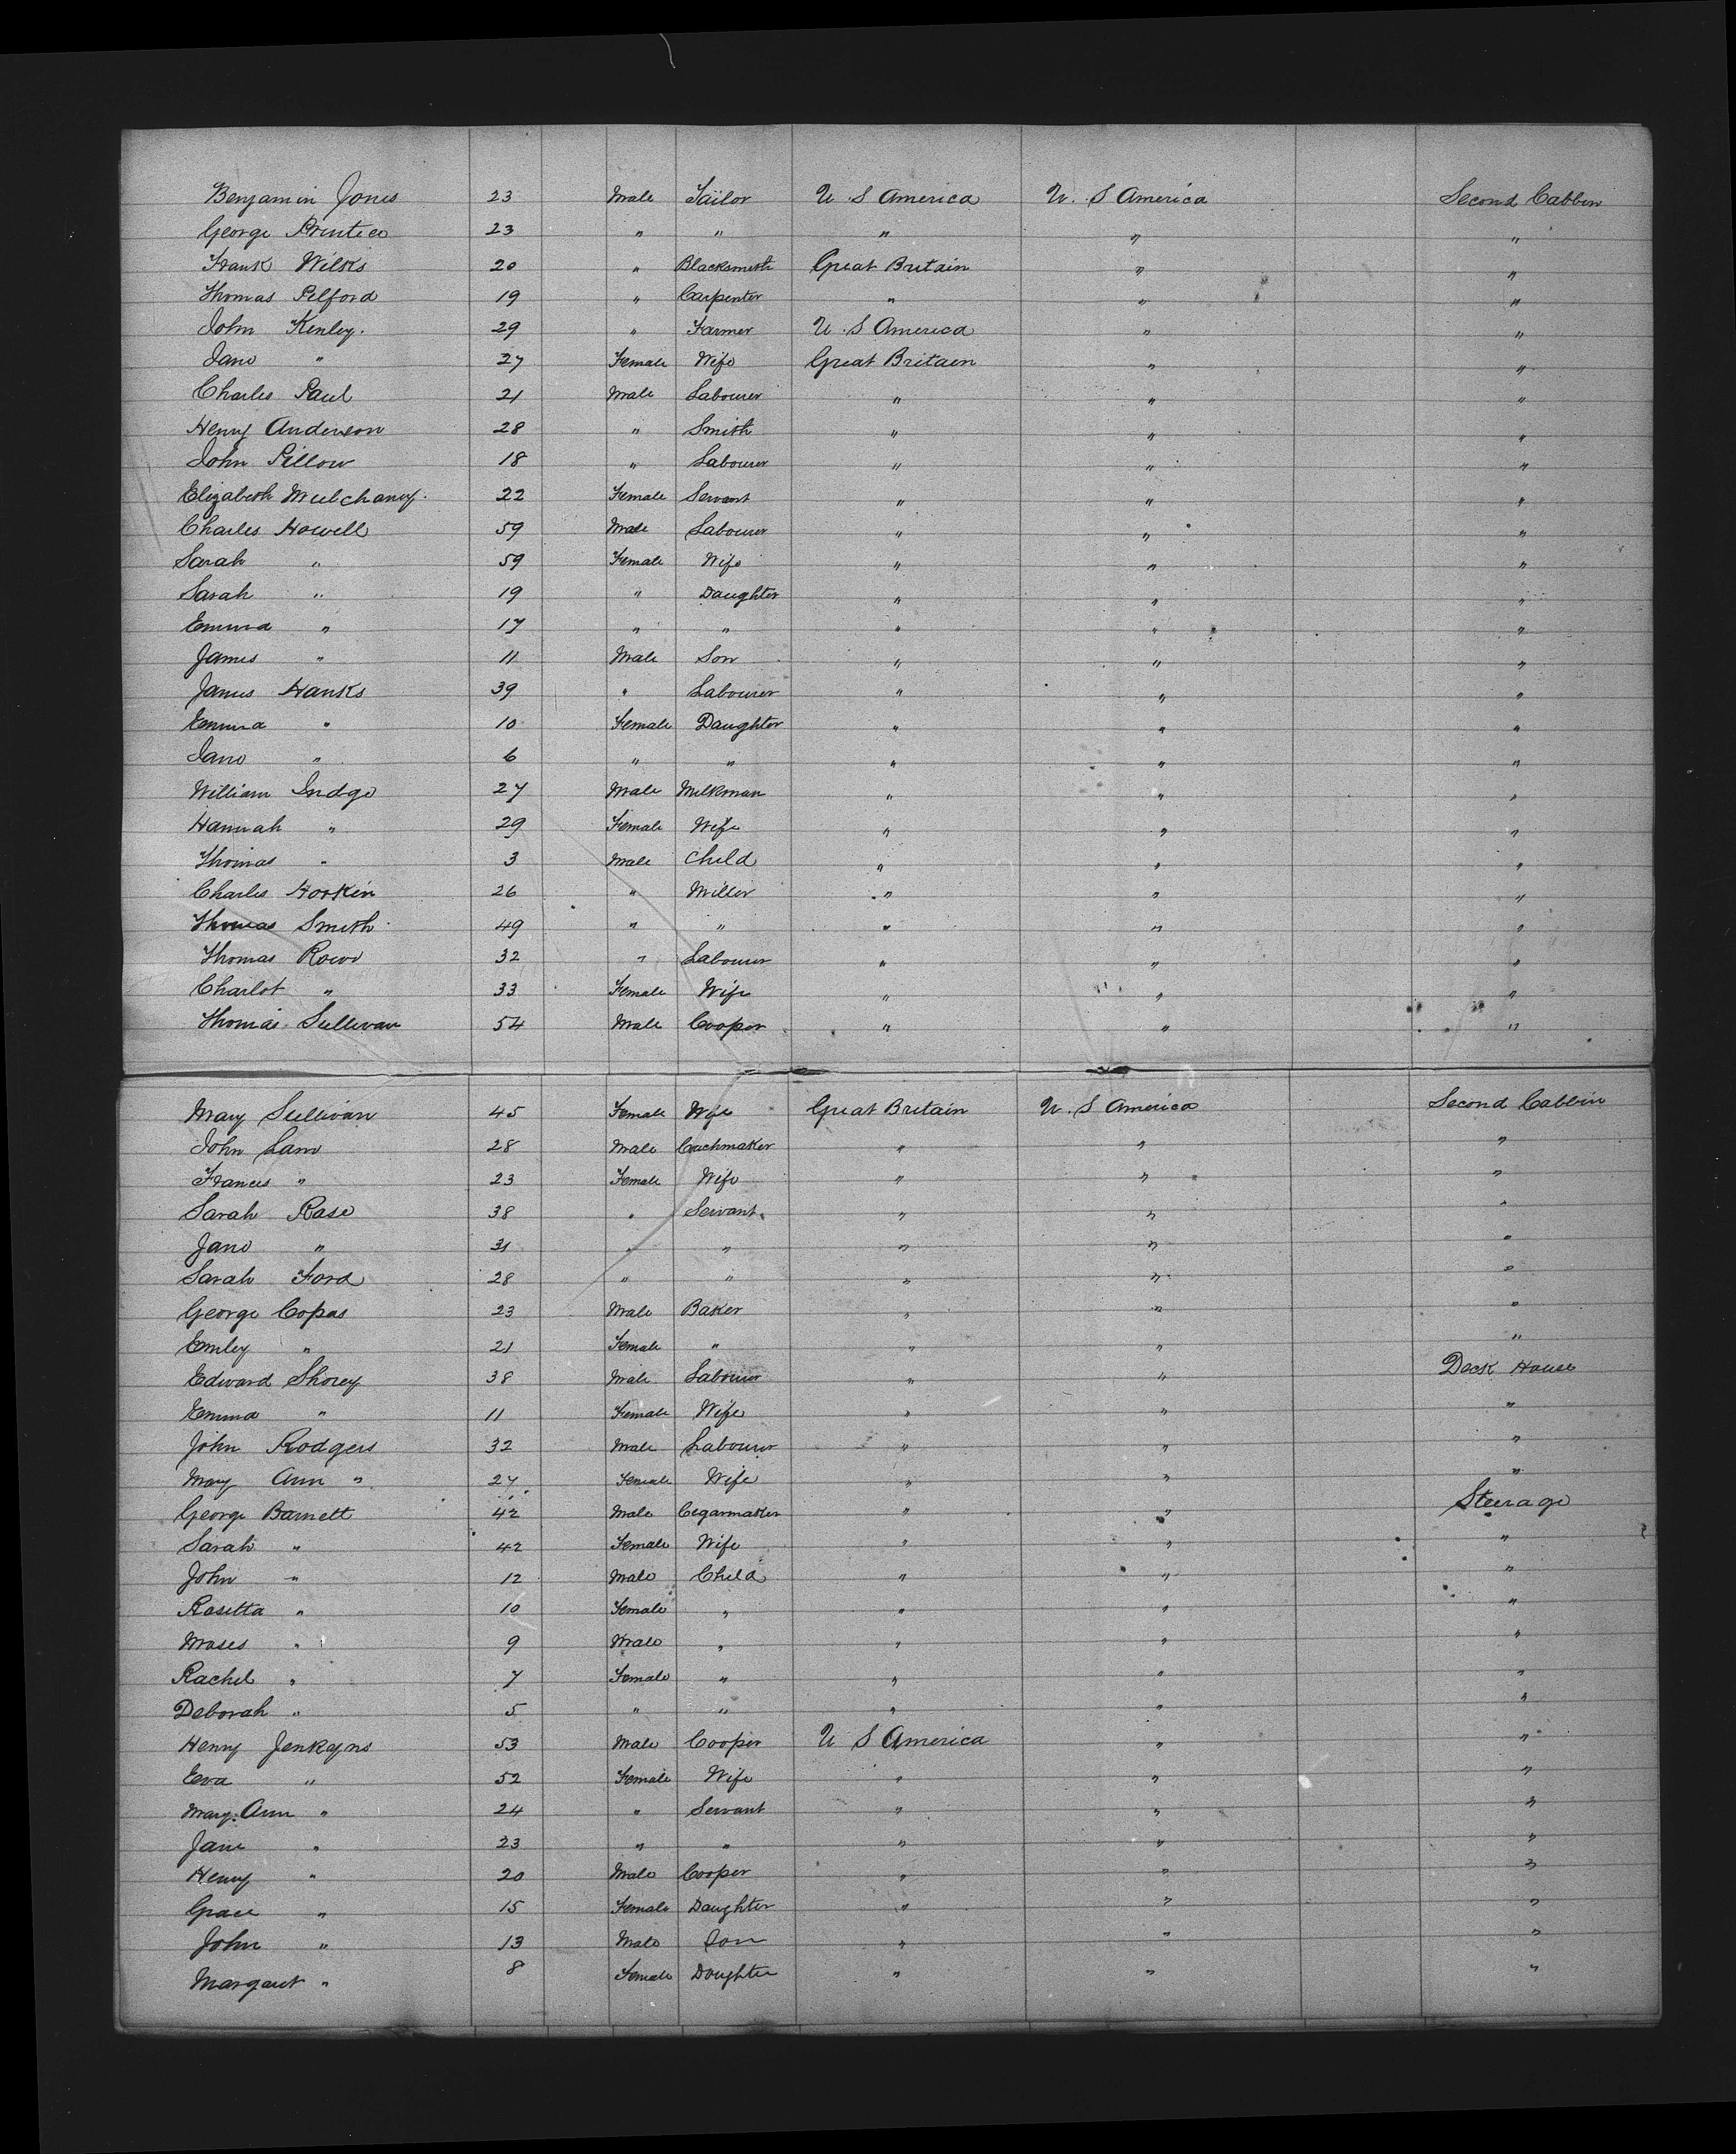 Benjamin Jones 23 Male Tailor U. S America U. S America Second Cabbin
George Prentice 23 " " " " "
Frank Wilks 20 " Blacksmith Great Britain " "
Thomas Pelford 19 " Carpenter " " "
John Kenley. 29 " Farmer U. S America " "
Jane " 27 Female Wife Great Britain " "
Charles Paul 21 Male Labourer " " "
Henry Anderson 28 " Smith " " "
John Pillow 18 " Labourer " " "
Elizabeth Mulchaney. 22 Female Servant " " "
Charles Howell 59 Male Labourer " " "
Sarah " 59 Female Wife " " "
Sarah " 19 " Daughter " " "
Emma " 17 " " " " "
James " 11 Male Son " " "
James Hanks 39 " Labourer " " "
Emma " 10 Female Daughter " " "
Jane " 6 " " " " "
William Indge 27 Male Milkman " " "
Hannah " 29 Female Wife " " "
Thomas " 3 Male Child " " "
Charles Hoskin 26 " Miller " " "
Thomas Smith 49 " " " " "
Thomas Rowe 32 " Labourer " " "
Charlot " 33 Female Wife " " "
Thomas Sullivan 54 Male Cooper " " "
Mary Sullivan 45 Female Wife Great Britain U. S America Second Cabbin
John Lane 28 Male Coachmaker " " "
Frances " 23 Female Wife " " "
Sarah Rase 38 " Servant " " "
Jane " 31 " " " " "
Sarah Ford 28 " " " " "
George Copas 23 Male Baker " " "
Emley " 21 Female " " " "
Edward Shorey 38 Male Labourer " " Deck House
Emma " 11 Female Wife " " "
John Rodgers 32 Male Labourer " " "
Mary Ann " 27 Female Wife " " "
George Barnett 42 Male Cegarmaker " " Steerage
Sarah " 42 Female Wife " " "
John " 12 Male Child " " "
Rosetta " 10 Female " " " "
Moses " 9 Male " " " "
Rachel " 7 Female " " " "
Deborah " 5 " " " " "
Henry Jenkyns 53 Male Cooper U S America " "
Eva " 52 Female Wife " " "
Mary Ann " 24 " Servant " " "
Jane " 23 " " " " "
Henry " 20 Male Cooper " " "
Grace " 15 Female Daughter " " "
John " 13 Male Son " " "
Margaret " 8 Female Doughter " " "